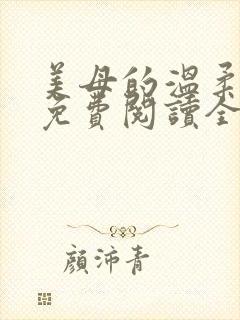 美母的溫柔
免費閱讀全
顏沛青